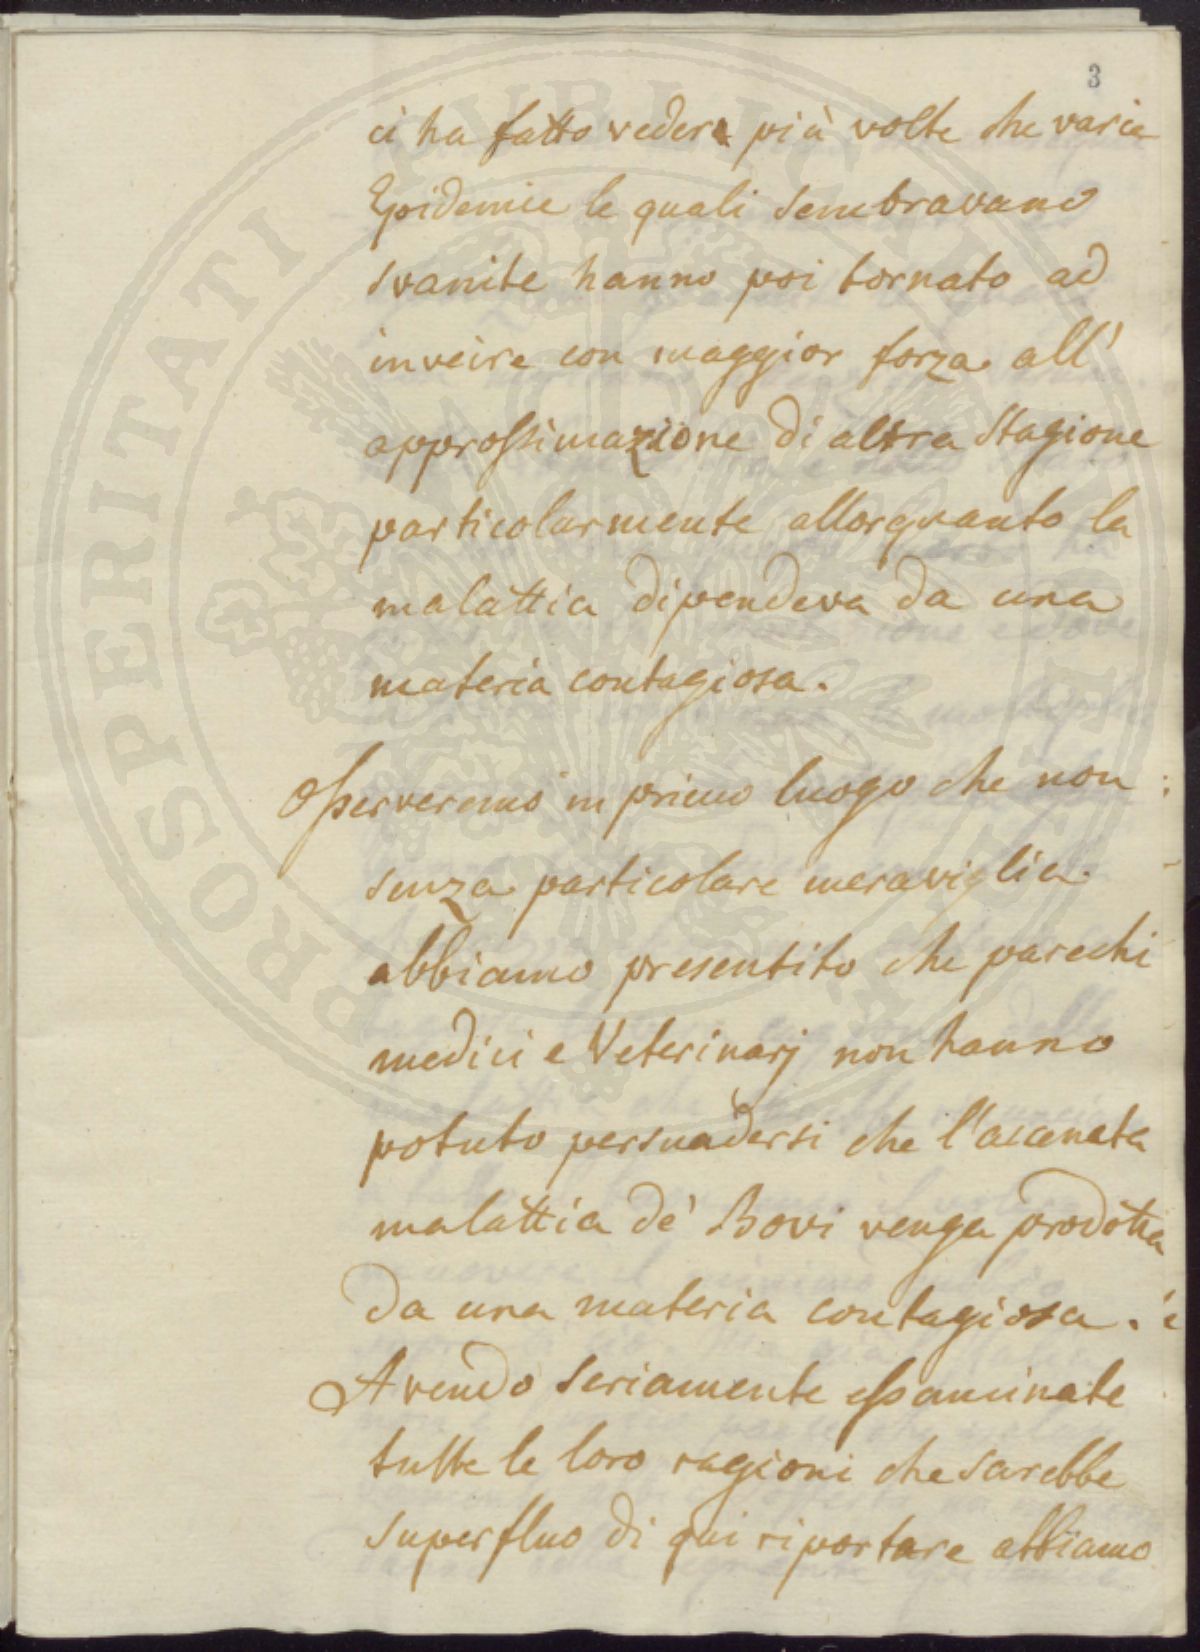 3
ci ha fatto vedere più volte che varie
Epidemie le quali sembravano
svanite hanno poi tornato ad
inveire con maggior forza all'
approssimazione di altra Stagione
particolarmente allorquanto la
malattia dipendeva da una
materia contagiosa.
Osserveremo in primo luogo che non
senza particolare meraviglia
abbiamo presentito che parechi
medici e Veterinarj non hanno
potuto persuadersi che l'accenata
malattia de' Bovi venga prodotta
da una materia contagiosa.
Avendo seriamente essaminate
tutte le loro ragioni che sarebbe
superfluo di qui riportare abbiamo
PROSPERITATI PUBLICAE